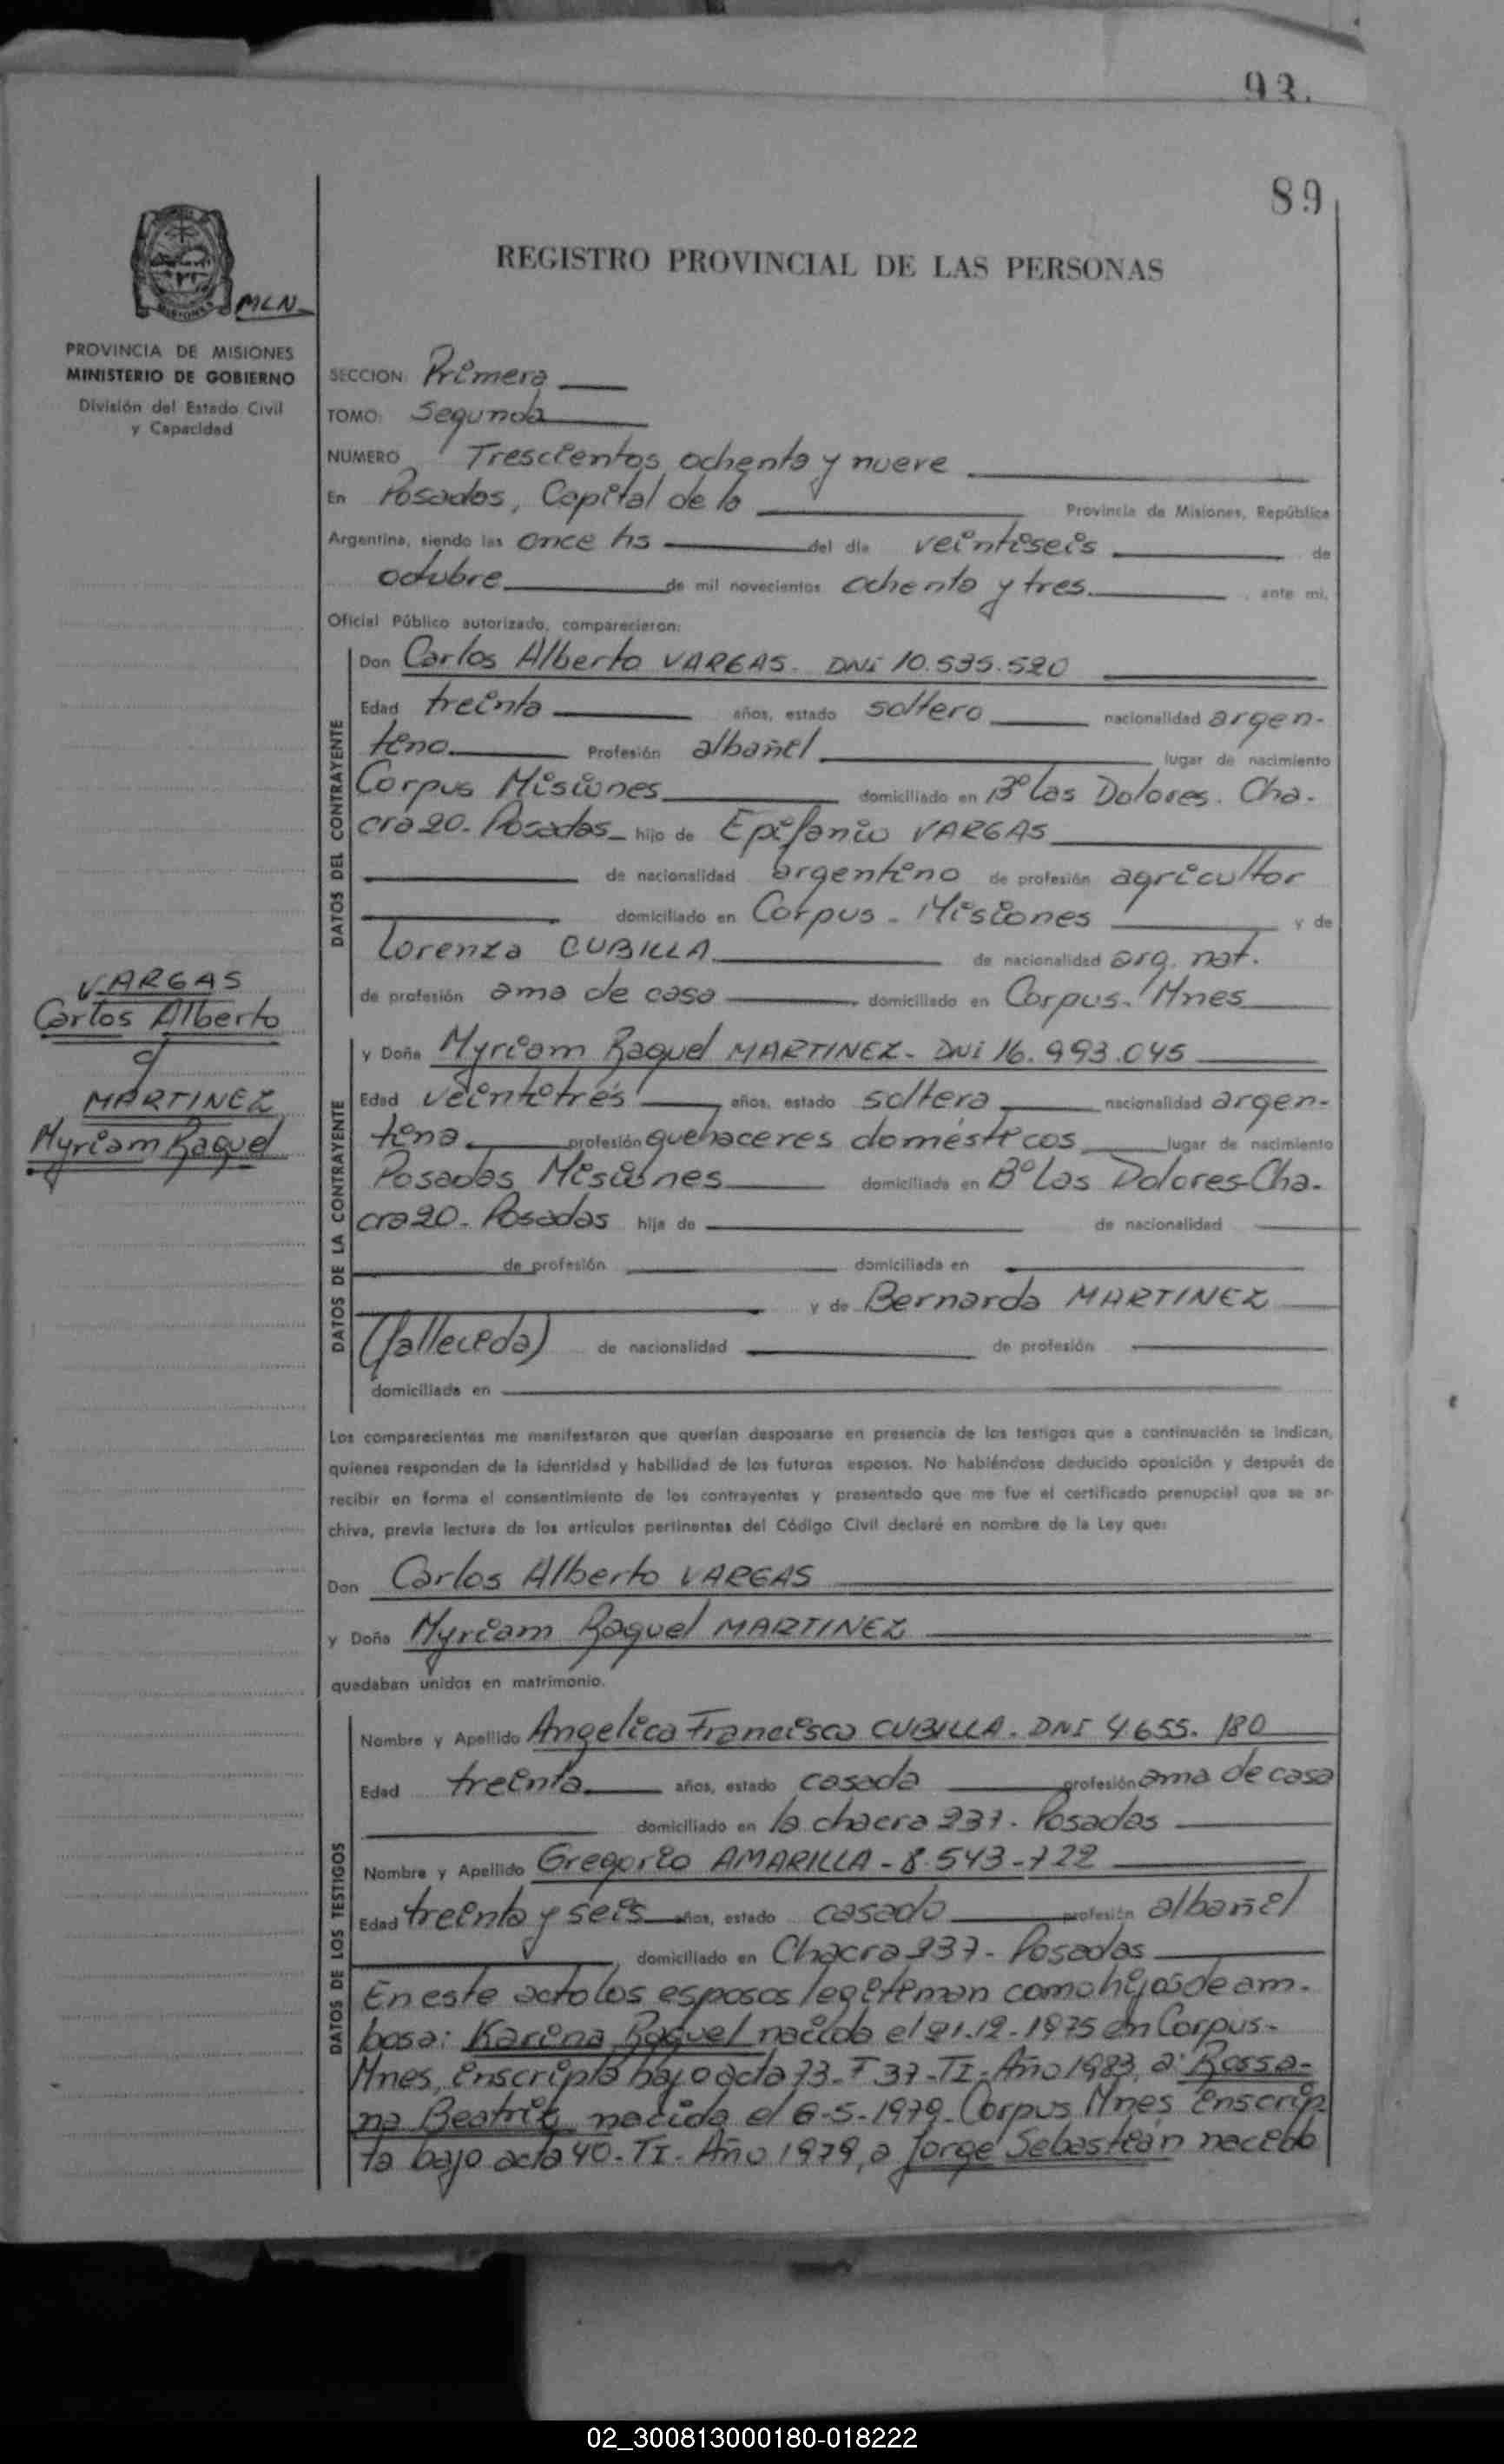 93.
89
REGISTRO PROVINCIAL DE LAS PERSONAS
MISIONES
MLN
PROVINCIA DE MISIONES
MINISTERIO DE GOBIERNO
División del Estado Civil
y Capacidad
SECCION: Primera
TOMO: Segundo
NUMERO Trescientos ochenta y nueve
En Posadas, Capital de la Provincia de Misiones, República
Argentina, siendo las once hs del día veintiseis de
octubre de mil novecientos ochenta y tres ante mí,
Oficial Público autorizado, comparecieron:
DATOS DEL CONTRAYENTE
Don Carlos Alberto VARGAS. DNi 10.535.520
Edad treinta años, estado soltero nacionalidad argen-
tina. Profesión albañil lugar de nacimiento
Corpus Misiones domiciliado en Bº Las Dolores. Cha-
cra 20. Posadas hijo de Epifanio VARGAS
de nacionalidad argentino de profesión agricultor
domiciliado en Corpus - Misiones y de
Lorenza CUBILLA de nacionalidad arg. nat.
de profesión ama de casa domiciliado en Corpus. Mnes
VARGAS
Carlos Alberto
c/
MARTINEZ
Myriam Raquel
DATOS DE LA CONTRAYENTE
y Doña Myriam Raquel MARTINEZ - DNi 16.993.045
Edad veintitrés años, estado soltera nacionalidad argen-
tina. profesión quehaceres domésticos lugar de nacimiento
Posadas Misiones domiciliada en Bº Las Dolores-Cha-
cra 20. Posadas hija de de nacionalidad
de profesión domiciliada en
y de Bernarda MARTINEZ
(fallecida) de nacionalidad de profesión
domiciliada en
Los comparecientes me manifestaron que querían desposarse en presencia de los testigos que a continuación se indican,
quienes responden de la identidad y habilidad de los futuros esposos. No habiéndose deducido oposición y después de
recibir en forma el consentimiento de los contrayentes y presentado que me fue el certificado prenupcial que se ar-
chiva, previa lectura de los artículos pertinentes del Código Civil declaré en nombre de la Ley que:
Don Carlos Alberto VARGAS
y Doña Myriam Raquel MARTINEZ
quedaban unidos en matrimonio.
DATOS DE LOS TESTIGOS
Nombre y Apellido Angelica Francisca CUBILLA. DNI 4.655.180
Edad treinta años, estado casada profesión ama de casa
domiciliado en la chacra 237. Posadas
Nombre y Apellido Gregorio AMARILLA - 8.543-722
Edad treinta y seis años, estado casado profesión albañil
domiciliado en Chacra 237 - Posadas
En este acto los esposos legitiman como hijos de am-
bos a: Karina Raquel nacida el 21.12.1975 en Corpus-
Mnes, inscripta bajo acta 73-F 37-TI-Año 1983, a Rossa-
na Beatriz nacida el 6-5-1979. Corpus Mnes inscrip-
ta bajo acta 40-TI-Año 1979, a Jorge Sebastián nacido
02_300813000180-018222